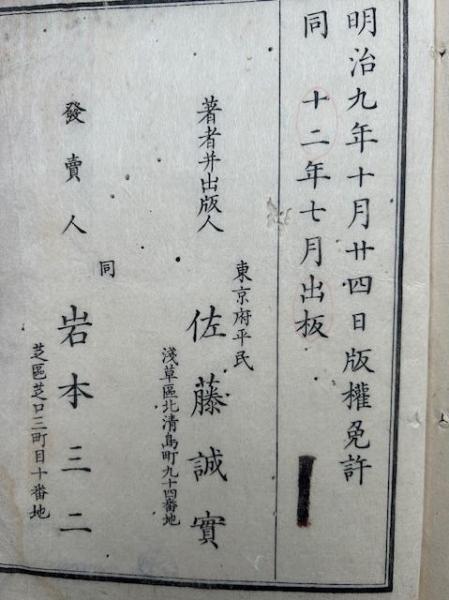 明治九年十月廿四日版權免許
同 十二年七月出板
著者并出版人
東京府平民
佐藤誠實
淺草區北清島町九十四番地
發賣人
同
岩本三二
芝區芝口三町目十番地